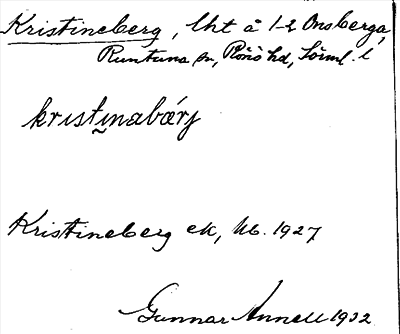 Kristineberg, lht å 1-2 Onsberga,
Runtuna sn, Rönö hd, Sörml. l
kristinabærj
Kristineberg ek, Ub. 1927
Gunnar Annell 1932